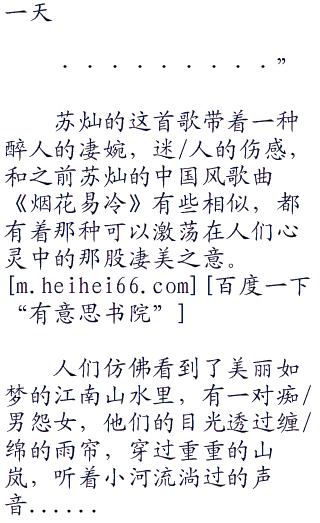 一天
· · · · · · · · ·”
苏灿的这首歌带着一种
醉人的凄婉，迷/人的伤感，
和之前苏灿的中国风歌曲
《烟花易冷》有些相似，都
有着那种可以激荡在人们心
灵中的那股凄美之意。
[m.heihei66.com][百度一下
“有意思书院”]
人们仿佛看到了美丽如
梦的江南山水里，有一对痴/
男怨女，他们的目光透过缠/
绵的雨帘，穿过重重的山
岚，听着小河流淌过的声
音......